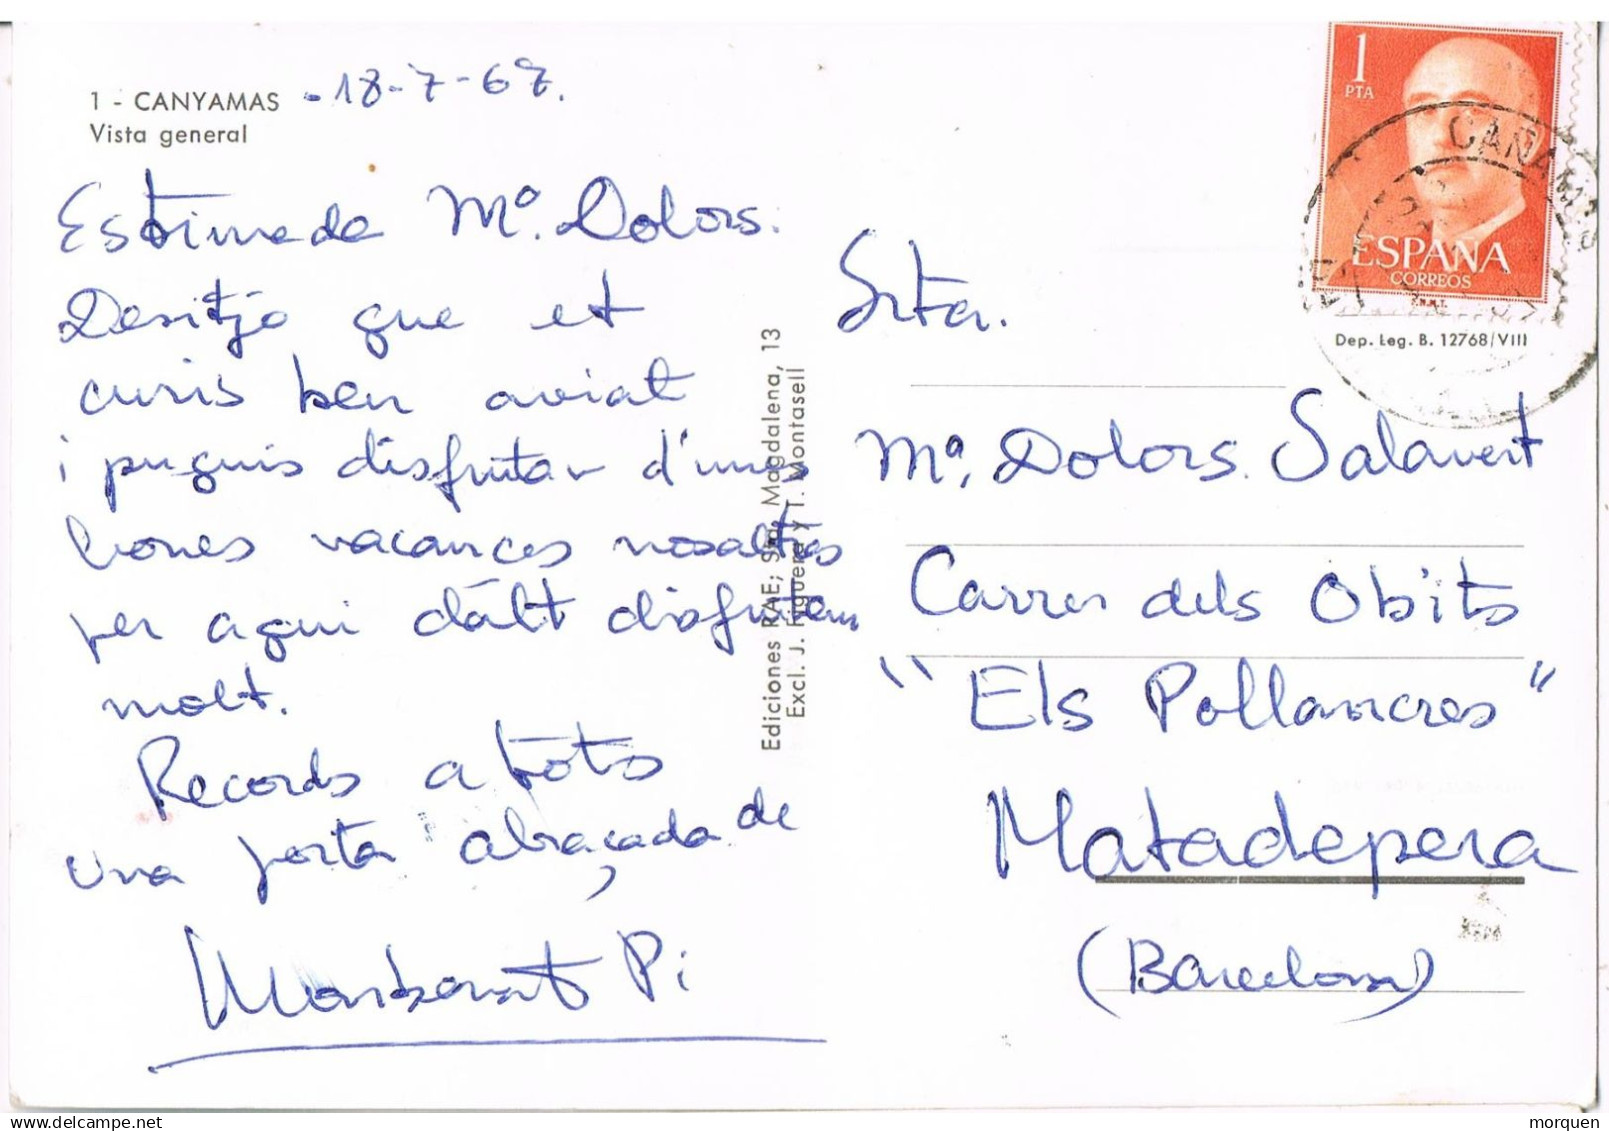 1 - CANYAMAS
Vista general
-18-7-67.
Estimada Mª. Dolors:
Desitjo que et
curis ben aviat
i puguis disfrutar d'unes
bones vacances nosaltres
per aqui dalt disfrutem
molt.
Records a tots
una forta abraçada de
Montserrat Pi
Ediciones RAE; Sta. Magdalena, 13
Excl. J. Figueras y T. Montasell
1
PTA
ESPAÑA
CORREOS
F.N.M.T.
CAÑAMAS
Dep. Leg. B. 12768/VIII
Srta.
Mª. Dolors Salavert
Carrer dels Obits
"Els Pollancres"
Matadepera
(Barcelona)
morquen